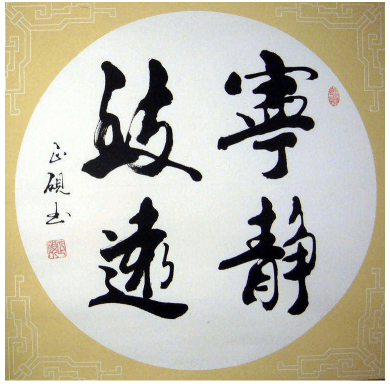 寧靜
致遠
正硯书